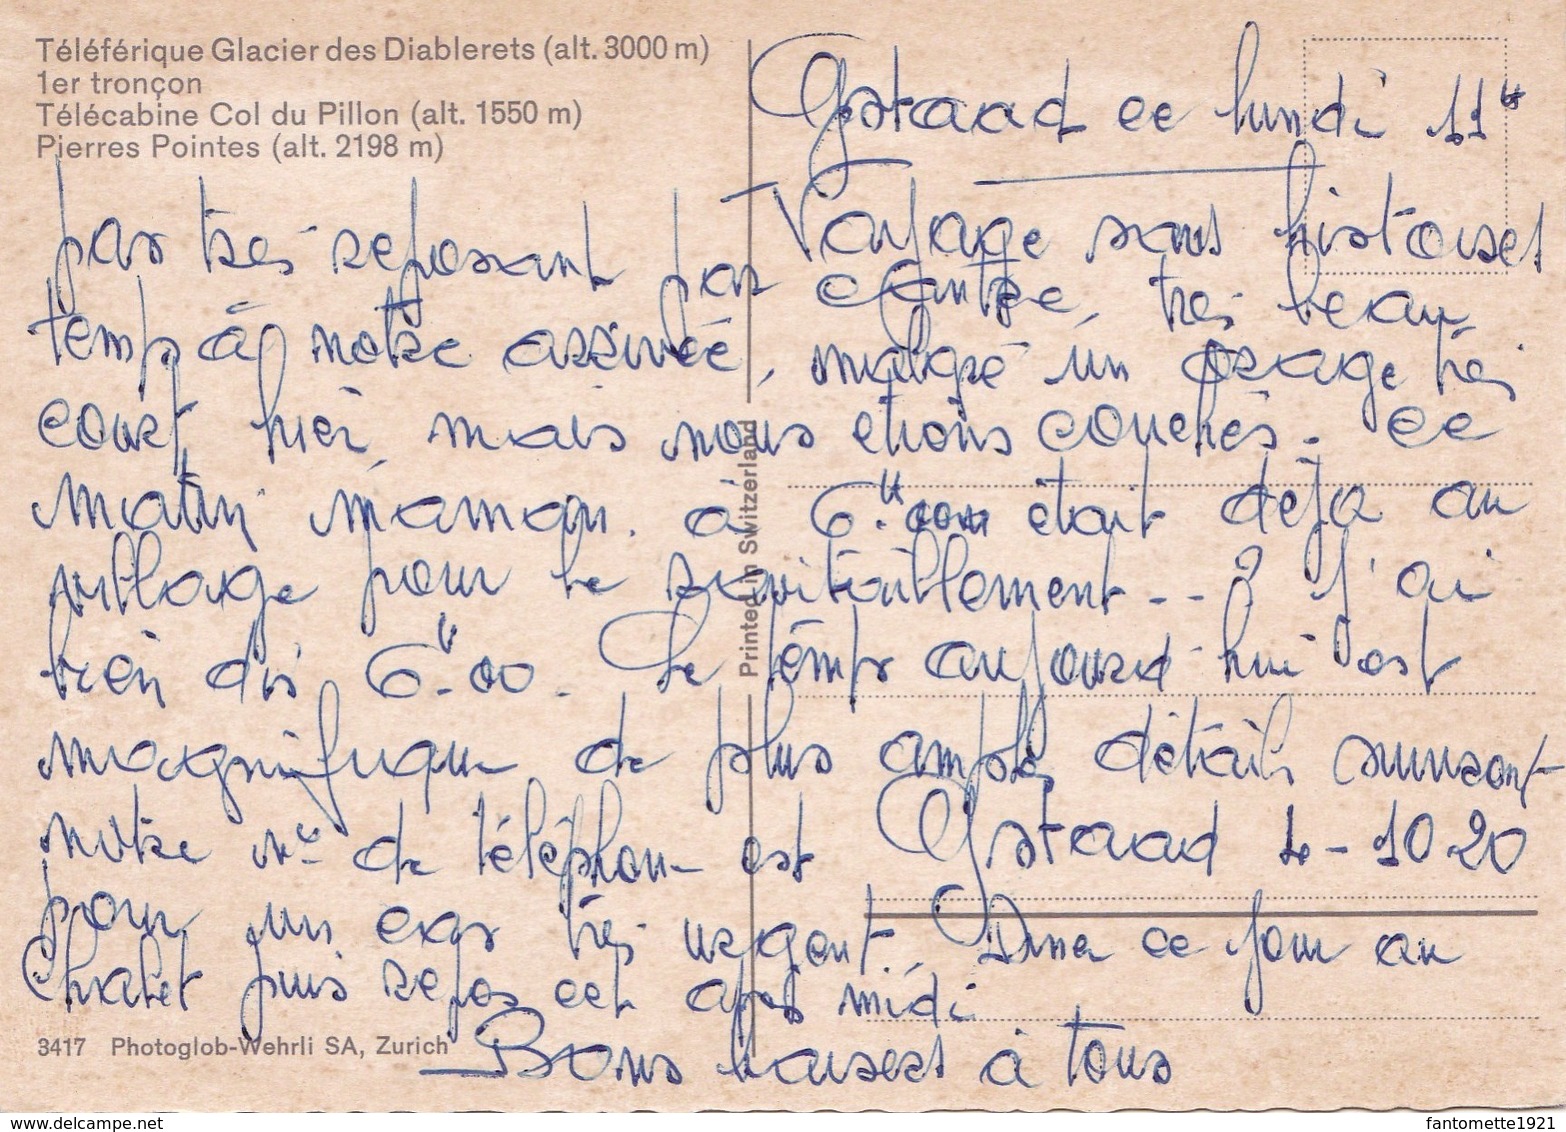 Téléférique Glacier des Diablerets (alt. 3000 m)
1er tronçon
Télécabine Col du Pillon (alt. 1550 m)
Pierres Pointes (alt. 2198 m)
Gstaad ce lundi 11h
Voyage sans histoires
pas très reposant par contre, très beau
temps à notre arrivée, malgré un orage très
court hier, mais nous étions couchés. Ce
matin maman. à 6.h00 était déjà au
village pour le ravitaillement -- ? J'ai
bien dis 6.h00. Le temps aujourd'hui est
magnifique de plus amples détails suivront
notre No de téléphone est Gstaad 4-10 20
pour un cas très urgent. Diner ce jour au
Chalet puis repos cet après midi
Bons baisers à tous
Printed in Switzerland
3417 Photoglob-Wehrli SA, Zurich
www.delcampe.net
fantomette1921